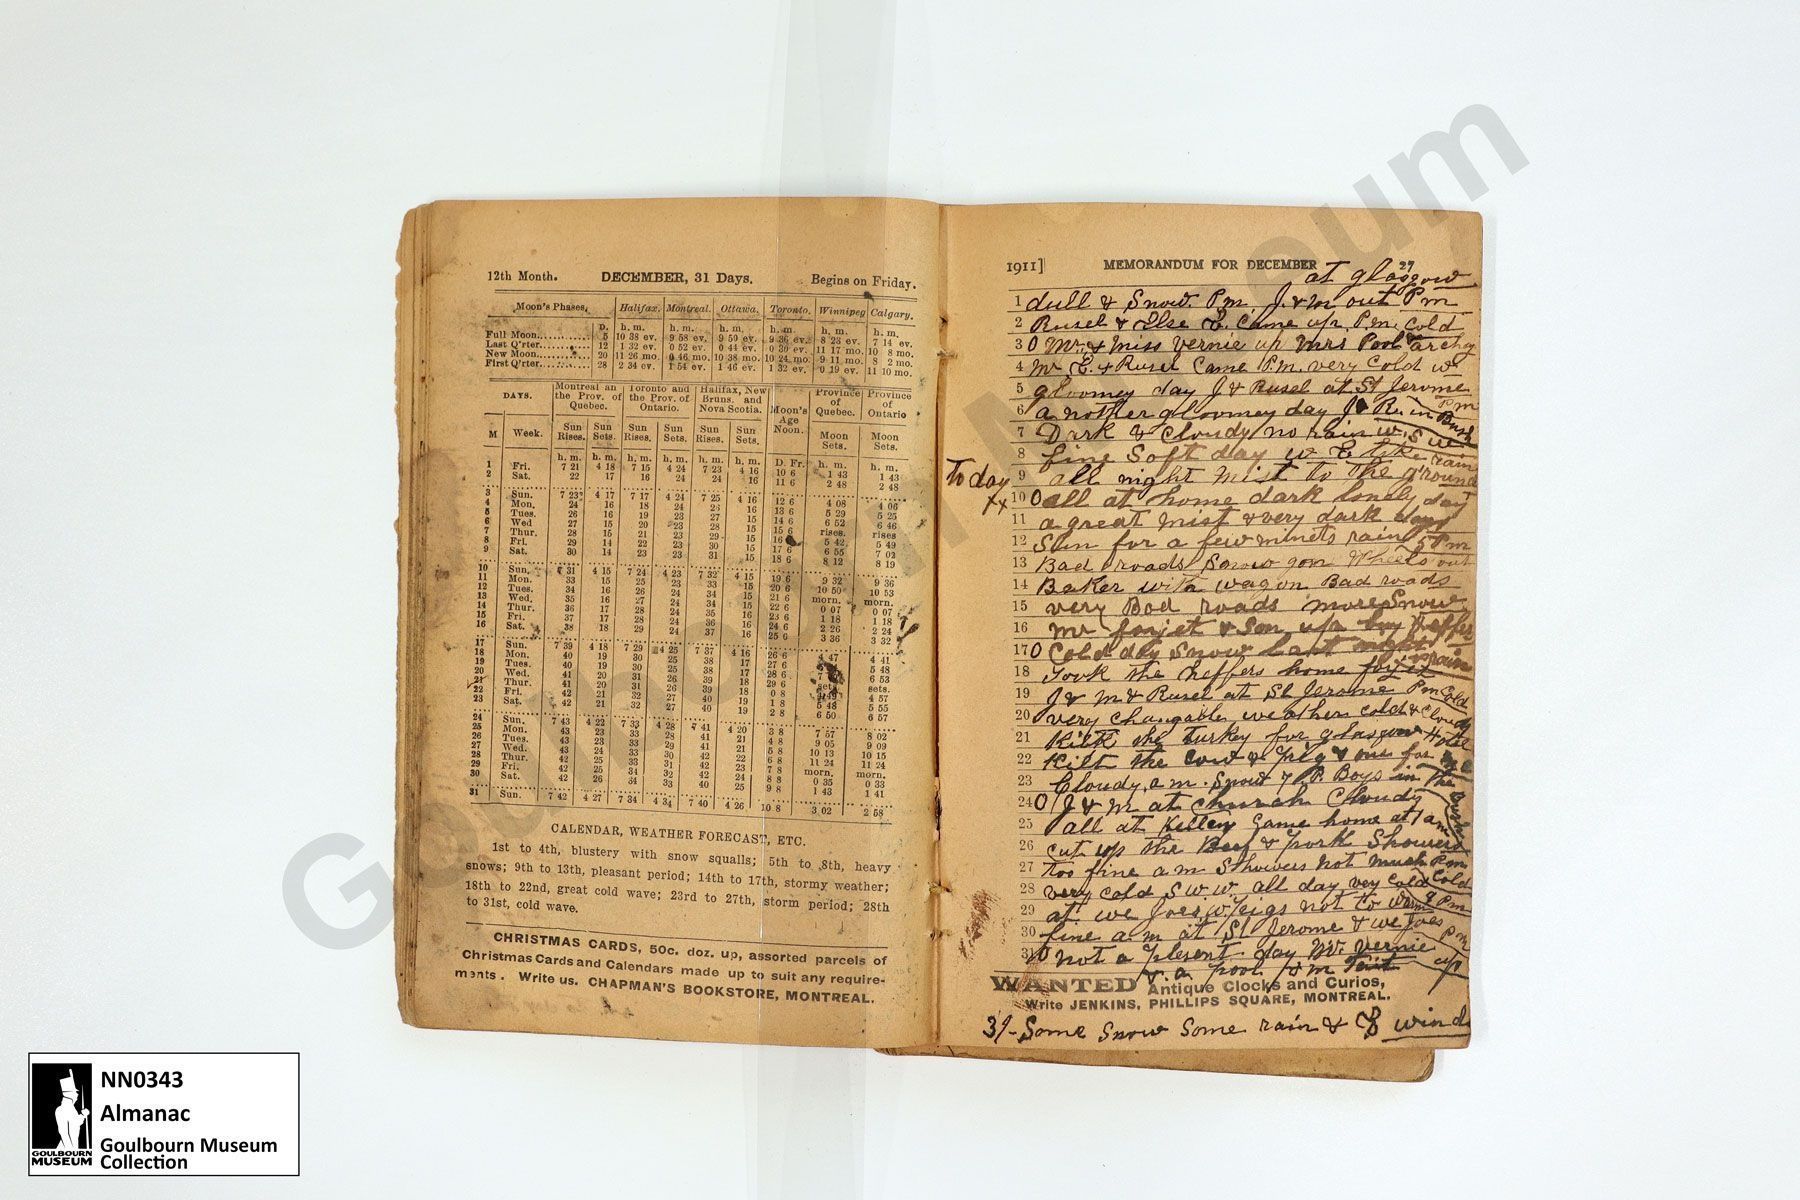 12th Month. DECEMBER, 31 Days. Begins on Friday.
Moon's Phases. Halifax. Montreal. Ottawa. Toronto. Winnipeg Calgary.
D. h. m. h. m. h. m. h. m. h. m. h. m.
Full Moon 5 10 38 ev. 9 58 ev. 9 50 ev. 9 36 ev. 8 23 ev. 7 14 ev.
Last Q'rter 12 1 32 ev. 0 52 ev. 0 44 ev. 0 30 ev. 11 17 mo. 10 8 mo.
New Moon 20 11 26 mo. 0 46 mo. 10 38 mo. 10 24 mo. 9 11 mo. 8 2 mo.
First Q'rter 28 2 34 ev. 1 54 ev. 1 46 ev. 1 32 ev. 0 19 ev. 11 10 mo.
DAYS. Montreal an the Prov. of Quebec. Toronto and the Prov. of Ontario. Halifax, New Bruns. and Nova Scotia. Moon's Age Noon. Province of Quebec. Province of Ontario
M Week. Sun Rises. Sun Sets. Sun Rises. Sun Sets. Sun Rises. Sun Sets. Moon Sets. Moon Sets.
h. m. h. m. h. m. h. m. h. m. h. m. D. Fr. h. m. h. m.
1 Fri. 7 21 4 18 7 15 4 24 7 23 4 16 10 6 1 43 1 43
2 Sat. 22 17 16 24 24 16 11 6 2 48 2 48
3 Sun. 7 23 4 17 7 17 4 24 7 25 4 16 12 6 4 08 4 06
4 Mon. 24 16 18 24 26 15 13 6 5 29 5 25
5 Tues. 26 16 19 23 27 15 14 6 6 52 6 46
6 Wed 27 15 20 23 28 15 15 6 rises. rises
7 Thur. 28 15 21 23 29 15 16 5 42 5 49
8 Fri. 29 14 22 23 30 15 17 6 6 55 7 02
9 Sat. 30 14 23 23 31 15 18 6 8 12 8 19
10 Sun. 7 31 4 15 7 24 4 23 7 32 4 15 19 6 9 32 9 36
11 Mon. 33 15 25 23 33 15 20 6 10 50 10 53
12 Tues. 34 16 26 24 34 15 21 6 morn. morn.
13 Wed. 35 16 27 24 34 15 22 6 0 07 0 07
14 Thur. 36 17 28 24 35 16 23 6 1 18 1 18
15 Fri. 37 17 28 24 36 16 24 6 2 26 2 24
16 Sat. 38 18 29 24 37 16 25 6 3 36 3 32
17 Sun. 7 39 4 18 7 29 4 25 7 37 4 16 26 6 4 47 4 41
18 Mon. 40 19 30 25 38 17 27 6 5 48
19 Tues. 40 19 30 25 38 17 28 6 6 53
20 Wed. 41 20 31 26 39 18 29 6 sets. sets.
21 Thur. 41 20 31 26 39 18 0 8 4 57
22 Fri. 42 21 32 27 40 19 1 8 5 48 5 55
23 Sat. 42 21 32 27 40 19 2 8 6 50 6 57
24 Sun. 7 43 4 22 7 33 4 28 7 41 4 20 3 8 7 57 8 02
25 Mon. 43 23 33 28 41 21 4 8 9 05 9 09
26 Tues. 43 23 33 29 41 21 5 8 10 13 10 15
27 Wed. 43 24 33 30 42 22 6 8 11 24 11 24
28 Thur. 42 25 34 31 42 23 7 8 morn. morn.
29 Fri. 42 25 34 32 42 24 8 8 0 35 0 33
30 Sat. 42 26 34 33 40 25 9 8 1 43 1 41
31 Sun. 7 42 4 27 7 34 4 34 7 40 4 26 10 8 3 02 2 58
CALENDAR, WEATHER FORECAST, ETC.
1st to 4th, blustery with snow squalls; 5th to 8th, heavy
snows; 9th to 13th, pleasant period; 14th to 17th, stormy weather;
18th to 22nd, great cold wave; 23rd to 27th, storm period; 28th
to 31st, cold wave.
CHRISTMAS CARDS, 50c. doz. up, assorted parcels of
Christmas Cards and Calendars made up to suit any require-
ments. Write us. CHAPMAN'S BOOKSTORE, MONTREAL.
1911] MEMORANDUM FOR DECEMBER 27
at glasgow
1 dull & Snow. Pm J. & M out Pm
2 Rusel & Else E. Came up P.m. Cold
3 0 Mr. & Miss Vernie up Mrs Pool & archy
4 Mr E. & Rusel Came P.m. very Cold w
5 gloomey day J & Rusel at St Jerome Pm
6 a nother gloomey day J & Ru in Bush
7 Dark & Cloudy no rain w. S w
8 fine Soft day w E like rain
to day
9 all night Mist to the ground
xx
10 0 all at home dark lonely day
11 a great mist & very dark day
12 Sun for a few minets rain 5 Pm
13 Bad roads Snow gon Wheels out
14 Baker with wagon Bad roads
15 very Bad roads more Snow
16 mr forjet & Son up
17 0 Cold day Snow Last night & rain
18 Took the heffers home forjet
19 J & M & Rusel at St Jerome Pm Cold
20 very changable weather cold & Cloudy
21 Kilt the turkey for glasgow Hotel
22 Kilt the cow & Pig & one for me
23 Cloudy, a.m. Snow 7 P. Boys in the Bush
24 0 J & M at Church Cloudy
25 all at Kelley Came home at 1 am
26 cut up the Beef & Pork Showers
27 too fine a m Showers not much Pm
28 very cold S w w all day, very Cold Cold
29 at we Joes w. Peigs not to warm P m
30 fine a.m at St Jerome & we Joes P m
31 0 not a plesent day Mr. Vernie up
& a pool & m
WANTED Antique Clocks and Curios,
Write JENKINS, PHILLIPS SQUARE, MONTREAL.
31- Some Snow Some rain & E wind
Goulbourn Museum
NN0343
Almanac
Goulbourn Museum
Collection
GOULBOURN
MUSEUM